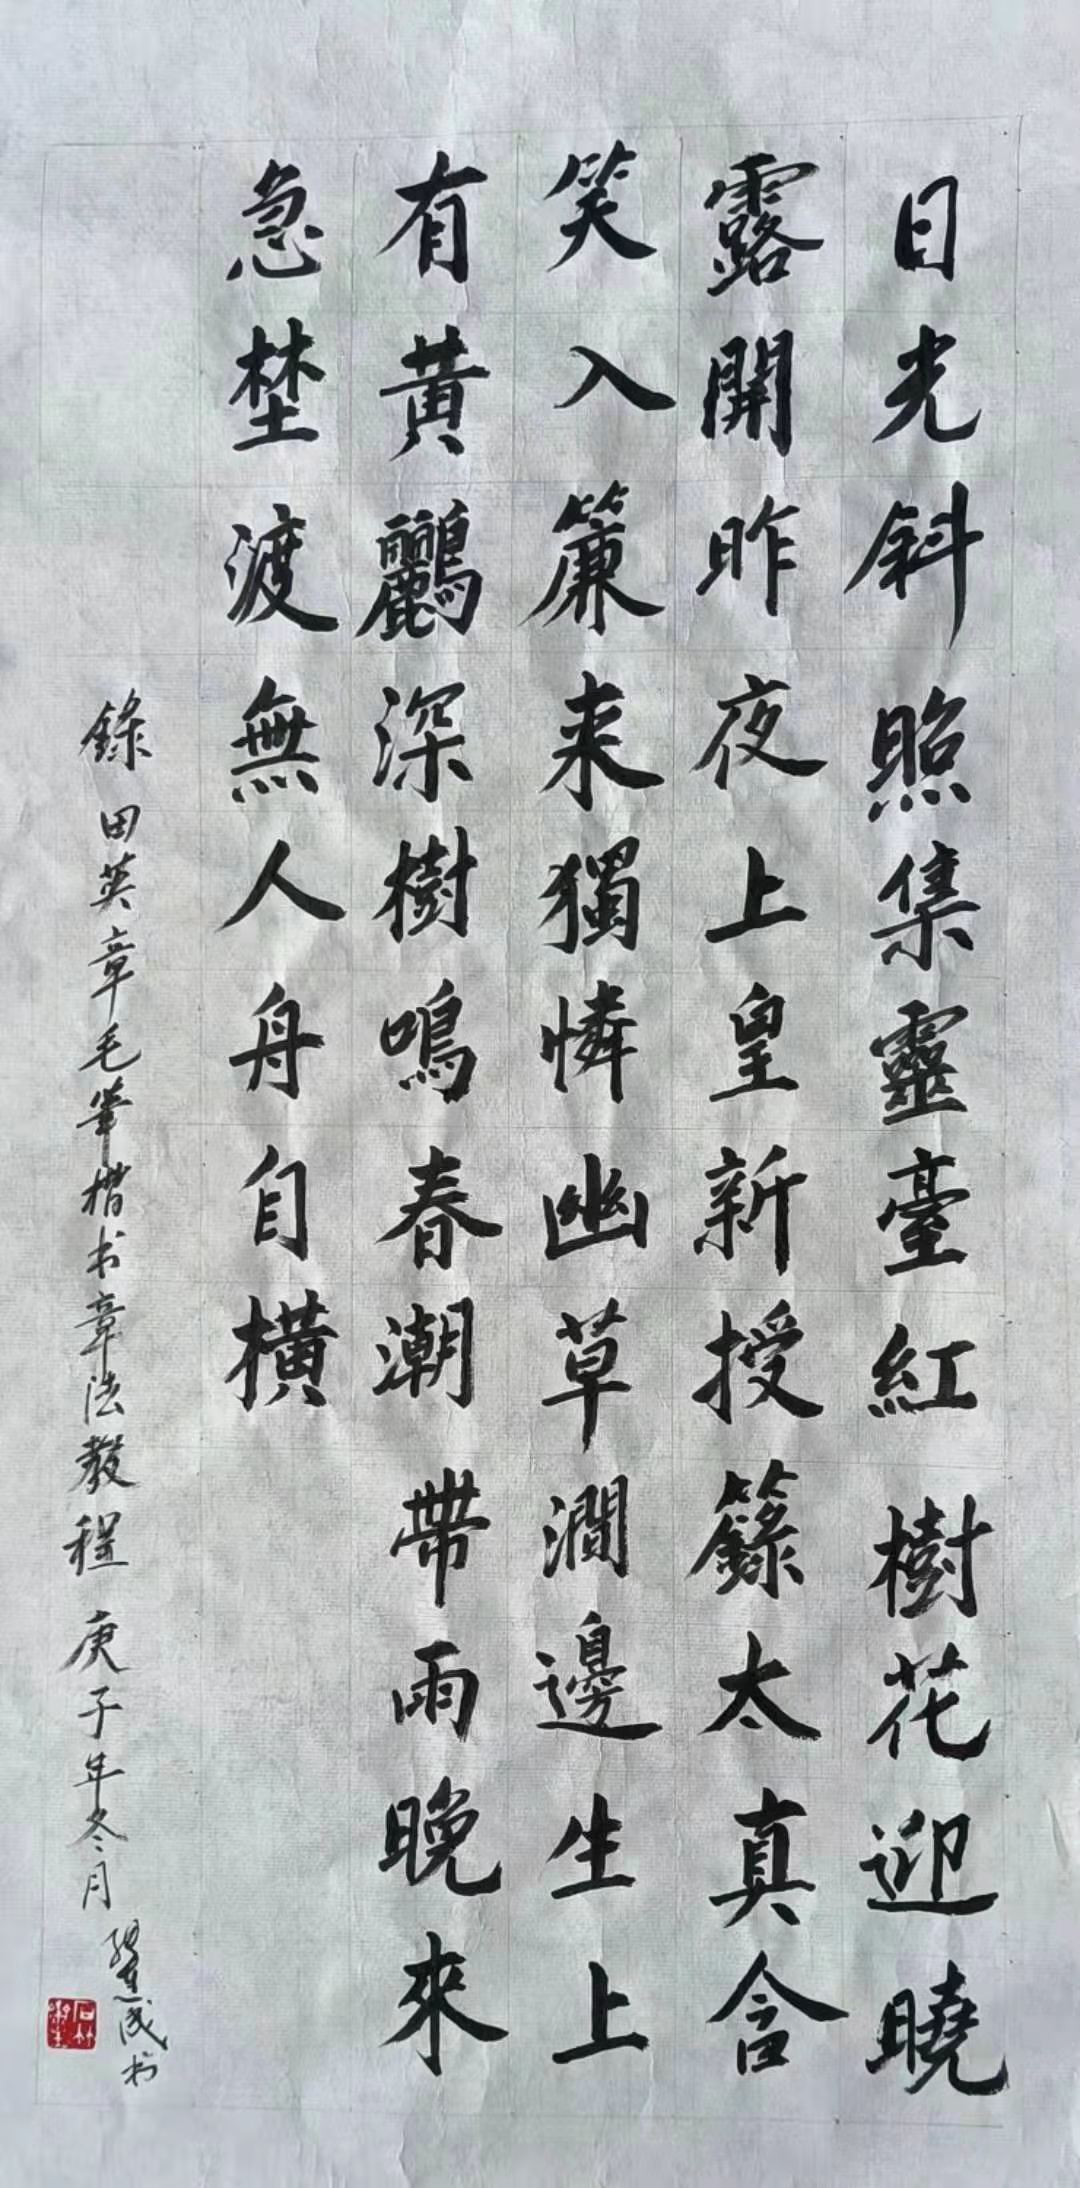 日光斜照集靈臺紅樹花迎曉
露開昨夜上皇新授籙太真含
笑入簾来獨憐幽草澗邊生上
有黃鸝深樹鳴春潮帶雨晚來
急埜渡無人舟自横
錄田英章毛筆楷书章法教程庚子年冬月
书